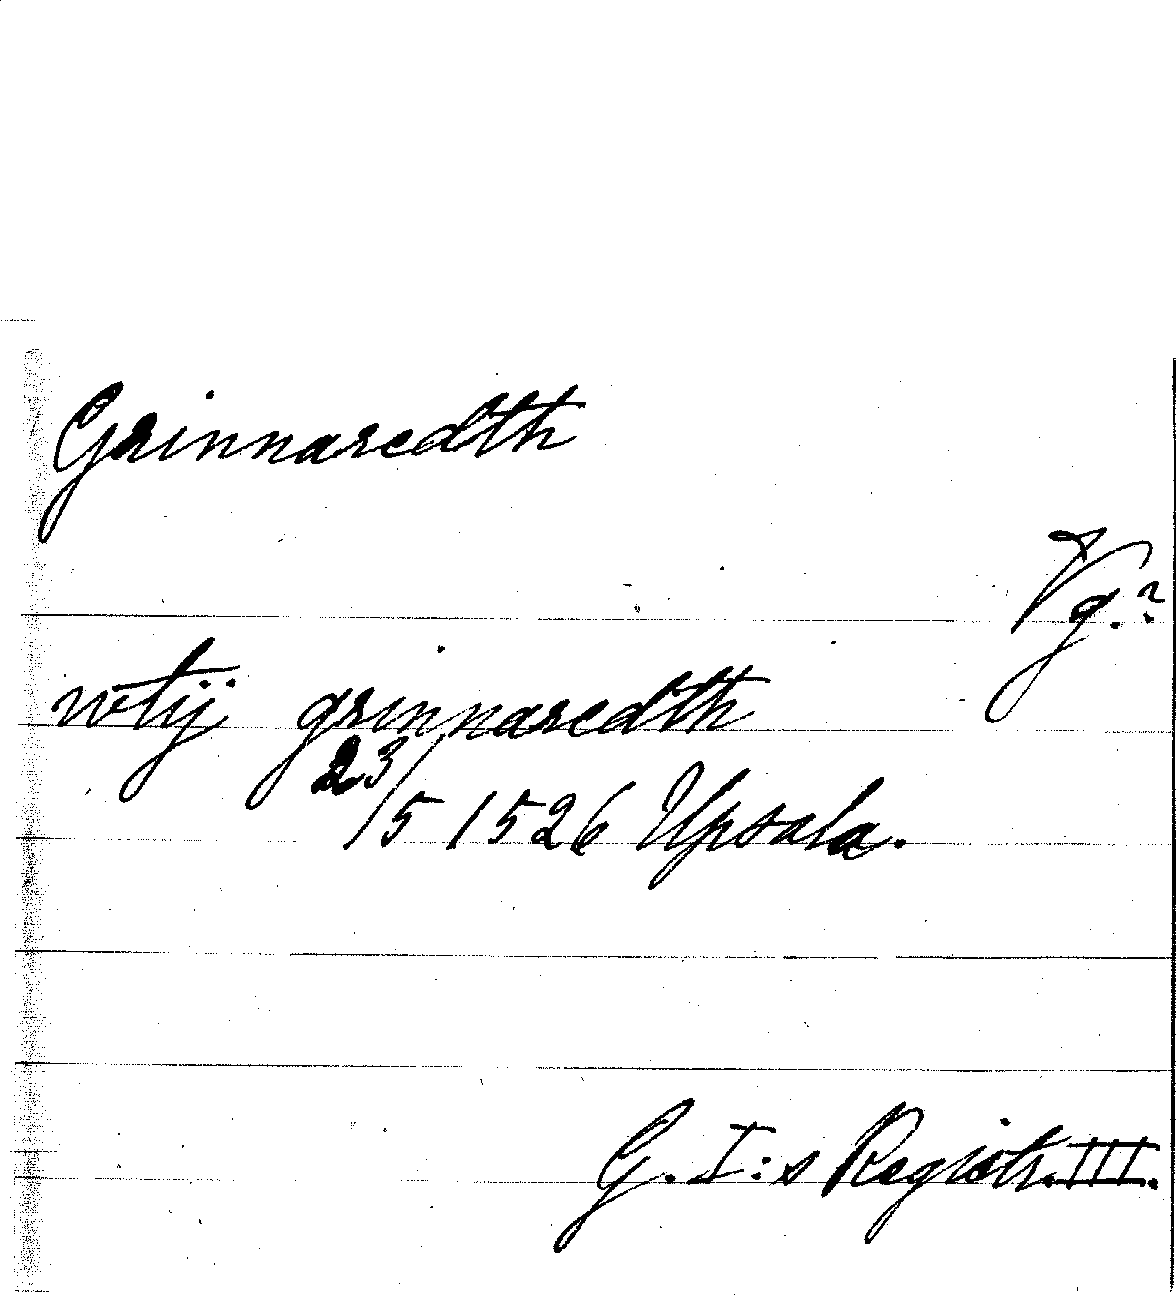 Grinnaredth
Vg.?
wtij grinnaredth
23/5 1526 Upsala.
G. I:s Registr. III.